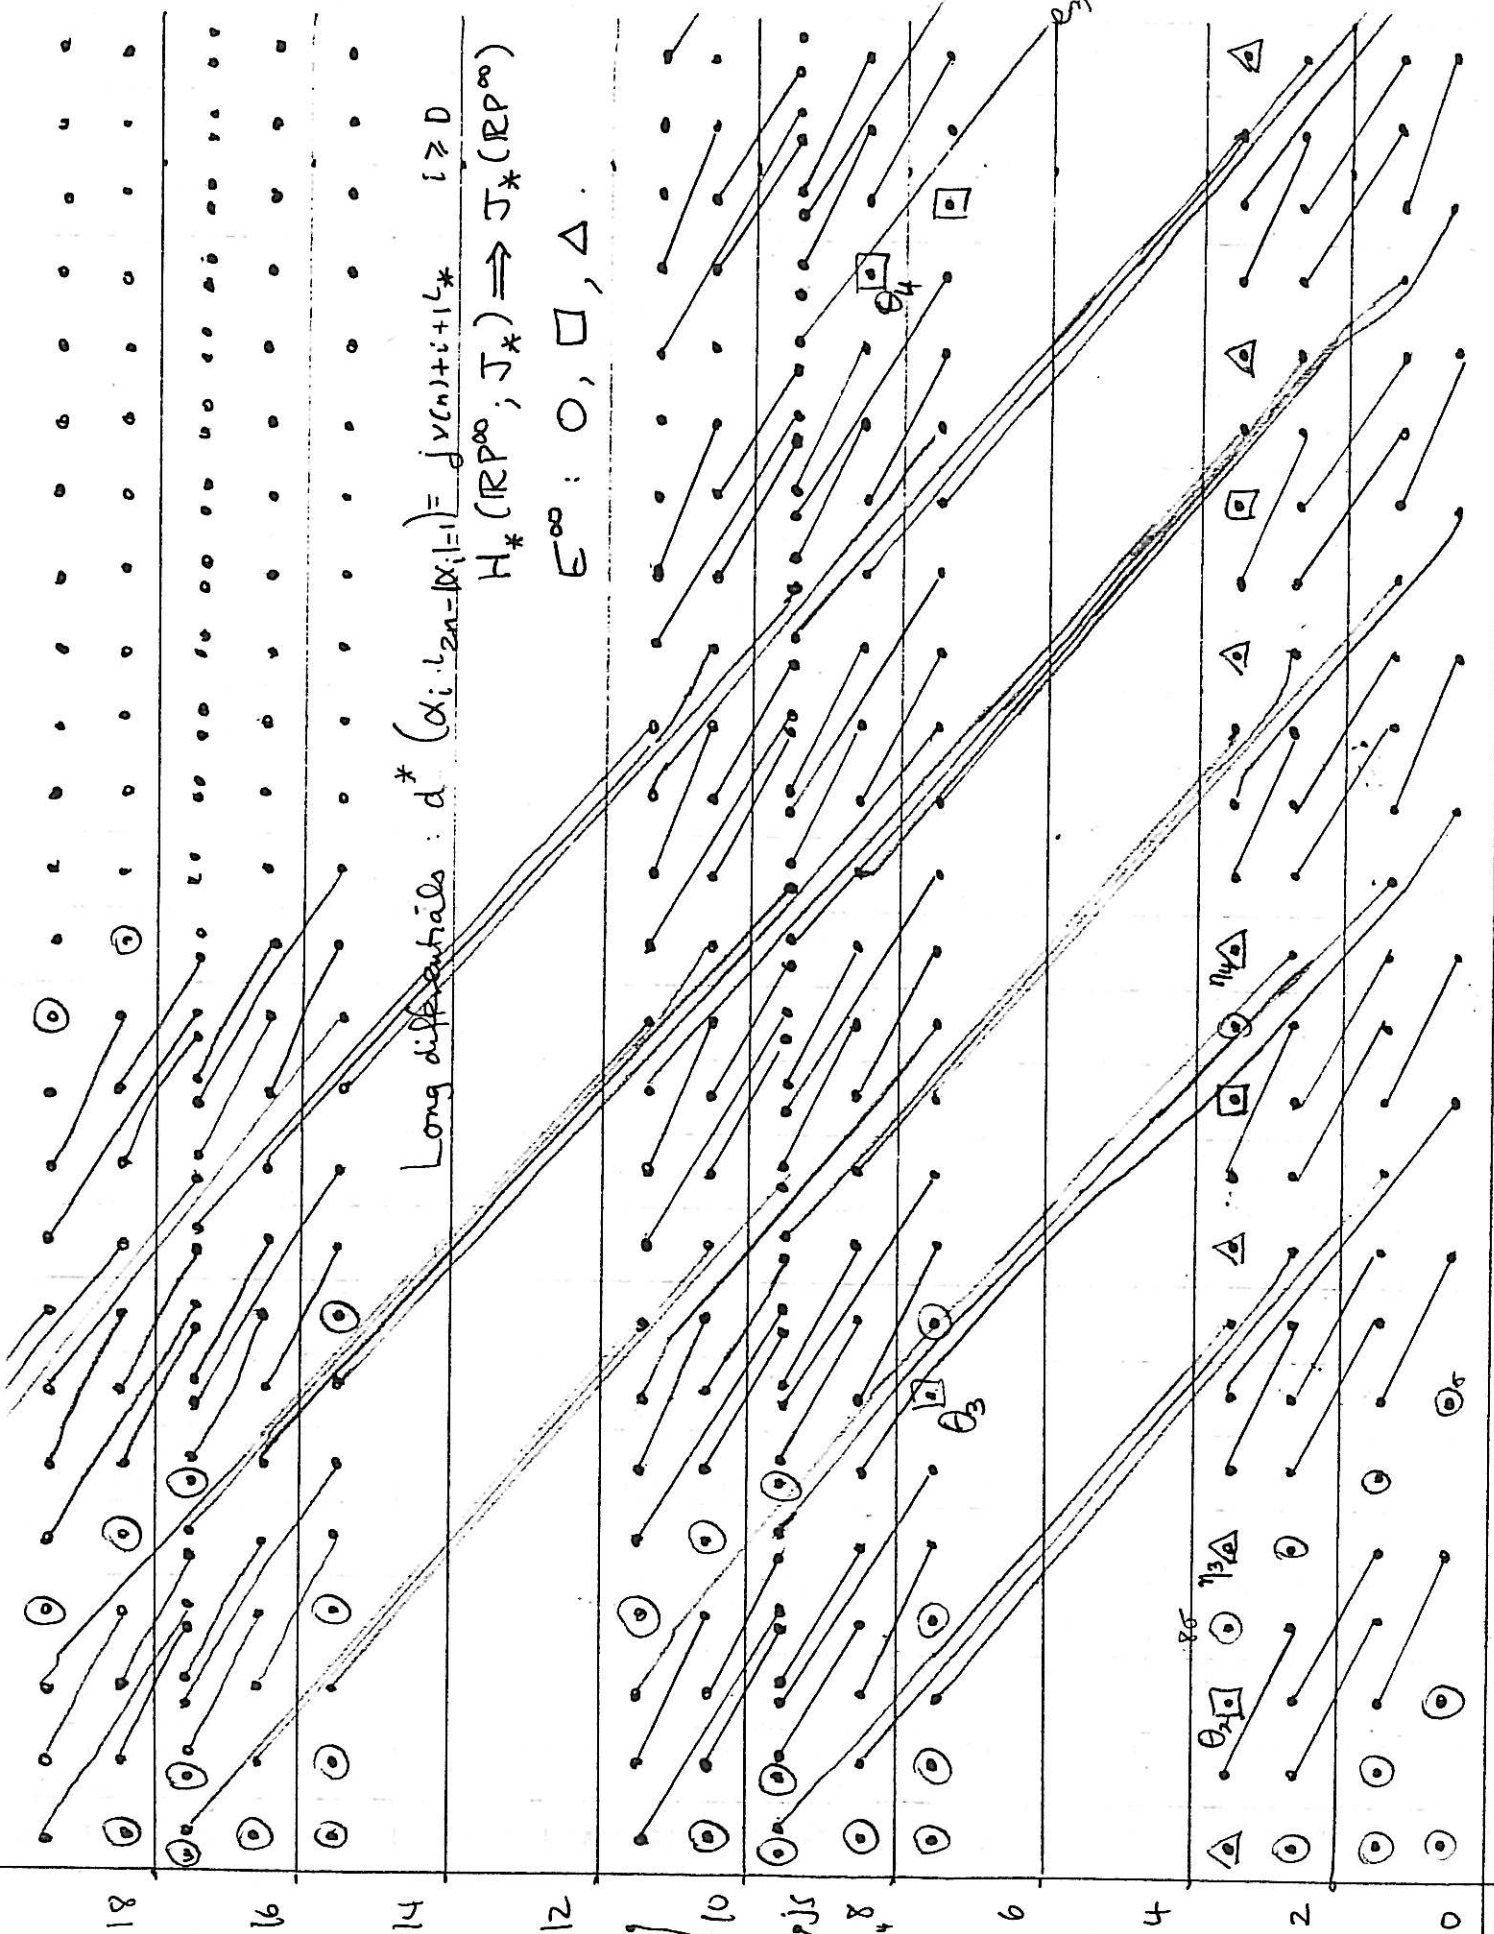 Long differentials : d* (αᵢ ι₂ₙ₋|αᵢ|₋₁) = jν(n)+i+1 ι* i ≥ 0
H*(RP^∞; J*) ⟹ J*(RP^∞)
E^∞ : O, □, △.
θ₄
η₄
θ₃
η₃
8σ
θ₂
σ
18
16
14
12
10
8
6
4
2
0